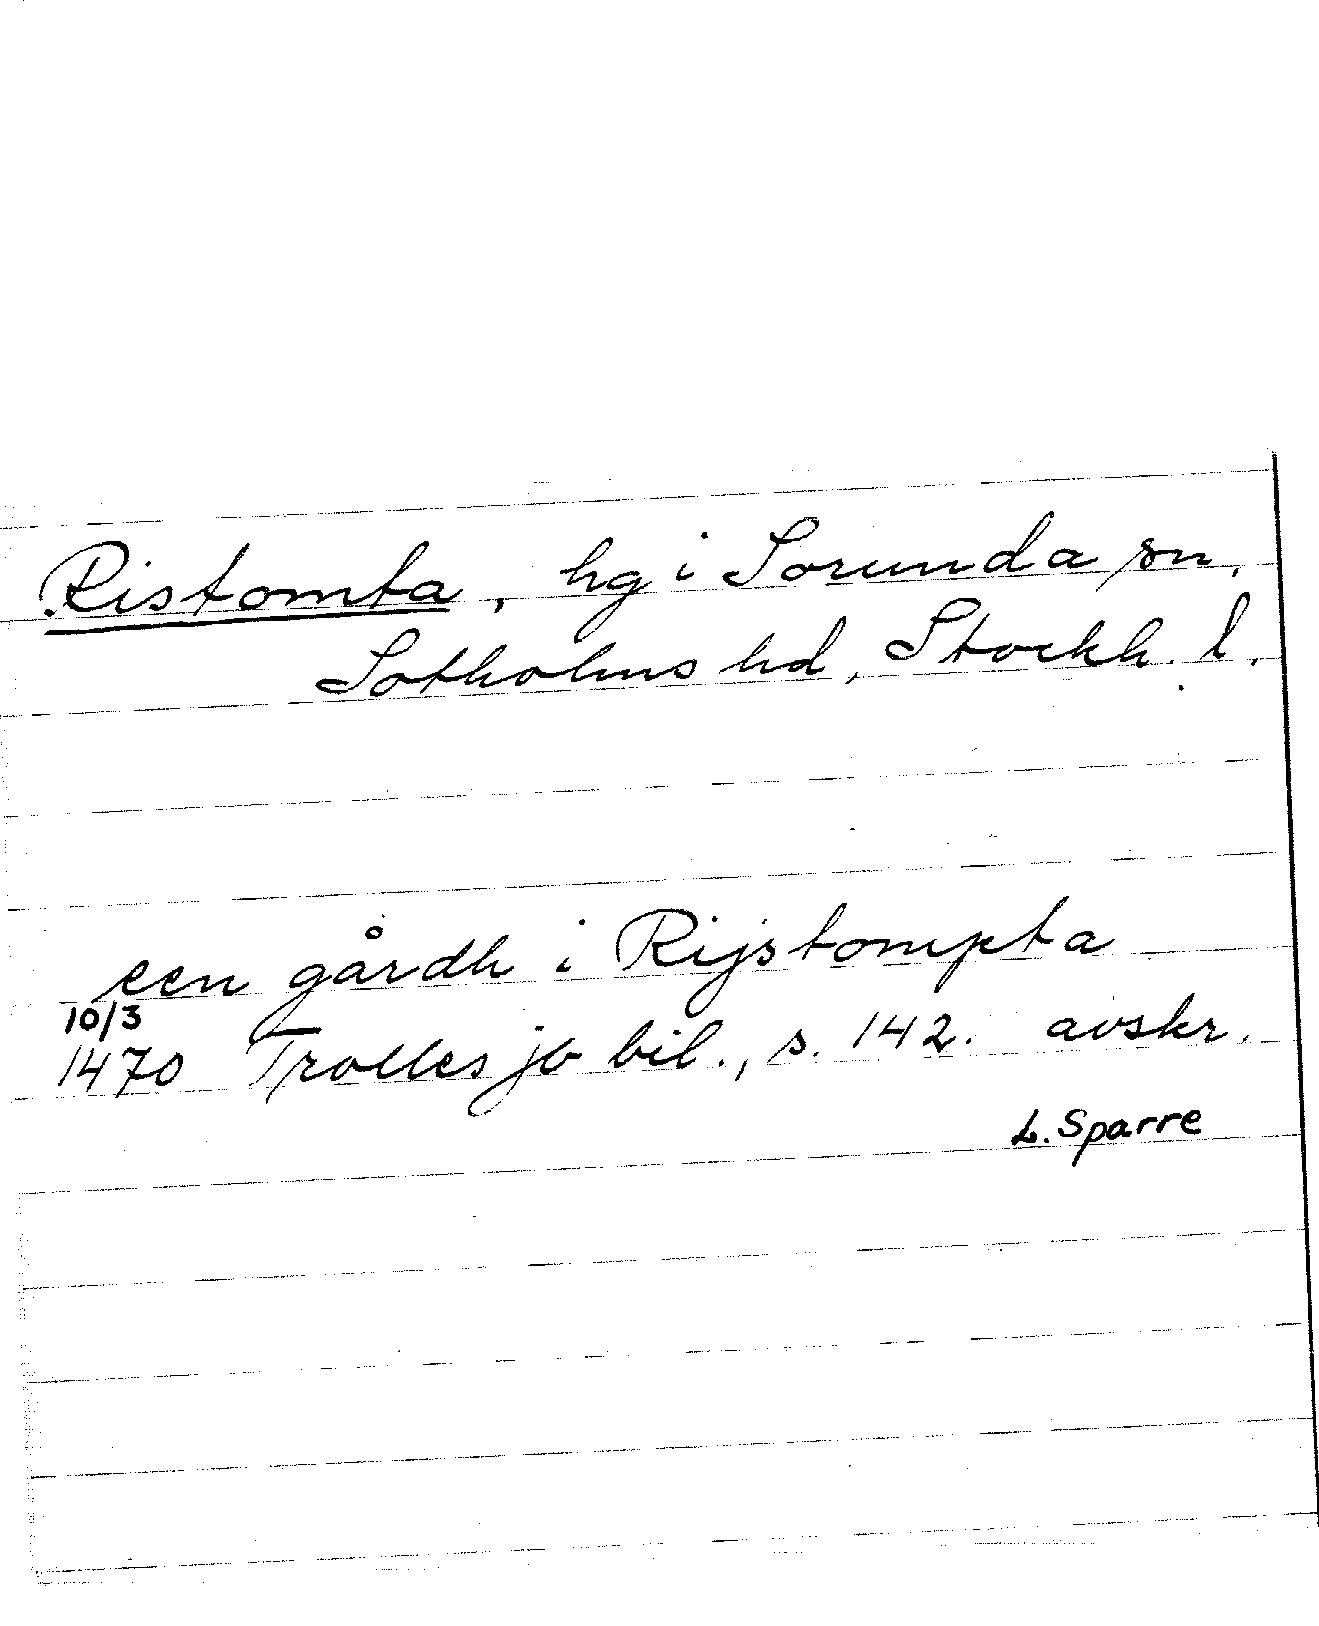 Ristomta, hg i Sorunda sn,
Sotholms hd, Stockh. l.
een gårdh i Rijstompta
10/3
1470 Trolles jb bil., s. 142. avskr.
L. Sparre